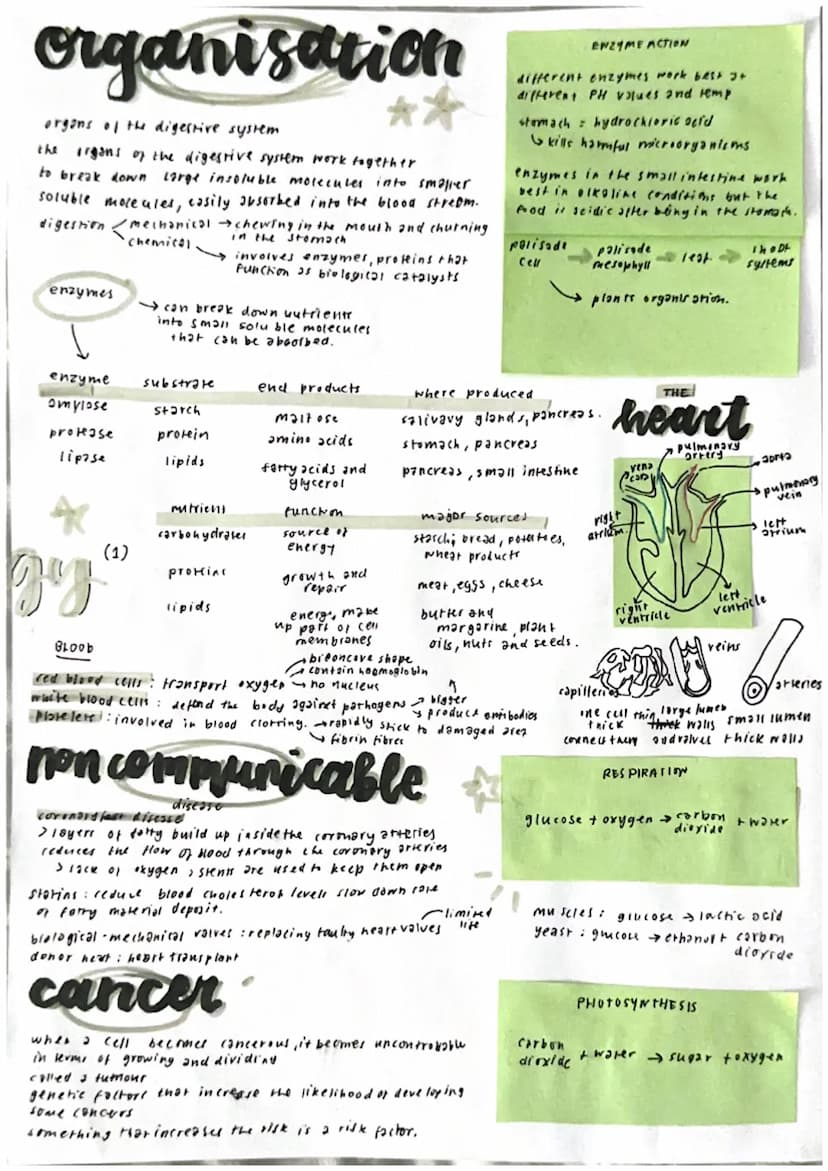 organisation
organs of the digestive system
the organs of the digestive system work together
to break down large insoluble molecules into smaller
soluble molecules, easily absorbed into the blood stream.
digestion mechanical → chewing in the mouth and churning
in the stomach
chemical
involves enzymes, proteins that
function as biological catalysts
enzymes
can break down nutrients
into small soluble molecules
that can be absorbed.
ENZYME ACTION
different enzymes work best at
different PH values and temp
stomach = hydrochloric acid
↳ kills harmful microorganisms
enzymes in the small intestine work
best in alkaline conditions but the
food is acidic after being in the stomach.
palisade cell → palisade mesophyll → leaf → shoot systems
plants organisation.
enzyme substrate end products where produced
amylase starch maltose salivary glands, pancreas.
protease protein amino acids stomach, pancreas
lipase lipids fatty acids and glycerol pancreas, small intestine
nutrient function major sources
carbohydrates source of energy starch; bread, potatoes, wheat products
proteins growth and repair meat, eggs, cheese
lipids energy, make up part of cell membranes butter and margarine, plant oils, nuts and seeds.
gy (1)
THE
heart
pulmonary artery
vena cava
aorta
pulmonary vein
right atrium
left atrium
right ventricle
left ventricle
veins
capilleries
arteries
one cell thin
large lumen
thick walls
small lumen
thick walls
and valves
BLOOD
red blood cells : transport oxygen
biconcave shape
contain haemoglobin
no nucleus
white blood cells : defend the body against pathogens
bigger
produce antibodies
platelets : involved in blood clotting. → rapidly stick to damaged area
fibrin fibres
non communicable
disease
> layers of fatty build up inside the coronary arteries
reduces the flow of blood through the coronary arteries
> lack of oxygen, stents are used to keep them open
statins : reduce blood cholesterol levels slow down rate
of fatty material deposit.
biological - mechanical valves : replacing faulty heart valves
limited life
donor heat : heart transplant
RESPIRATION
glucose + oxygen → carbon dioxide + water
muscles : glucose → lactic acid
yeast : glucose → ethanol + carbon
dioxide
cancer
when a cell becomes cancerous, it becomes uncontrobable
in terms of growing and dividing
called a tumour
genetic factors that increase the likelihood of developing
some cancers
something that increases the risk is a risk factor.
PHOTOSYNTHESIS
carbon dioxide + water → sugar + oxygen